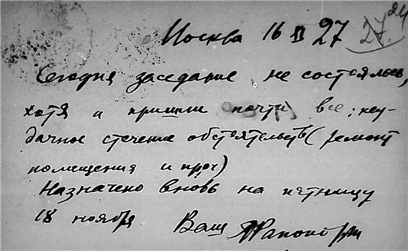 Москва 16 XI 27
Сегодня заседание не состоялось,
хотя и пришли почти все; неу-
дачное стечение обстоятельств (ремонт
помещения и проч)
Назначено вновь на пятницу
18 ноября Ваш